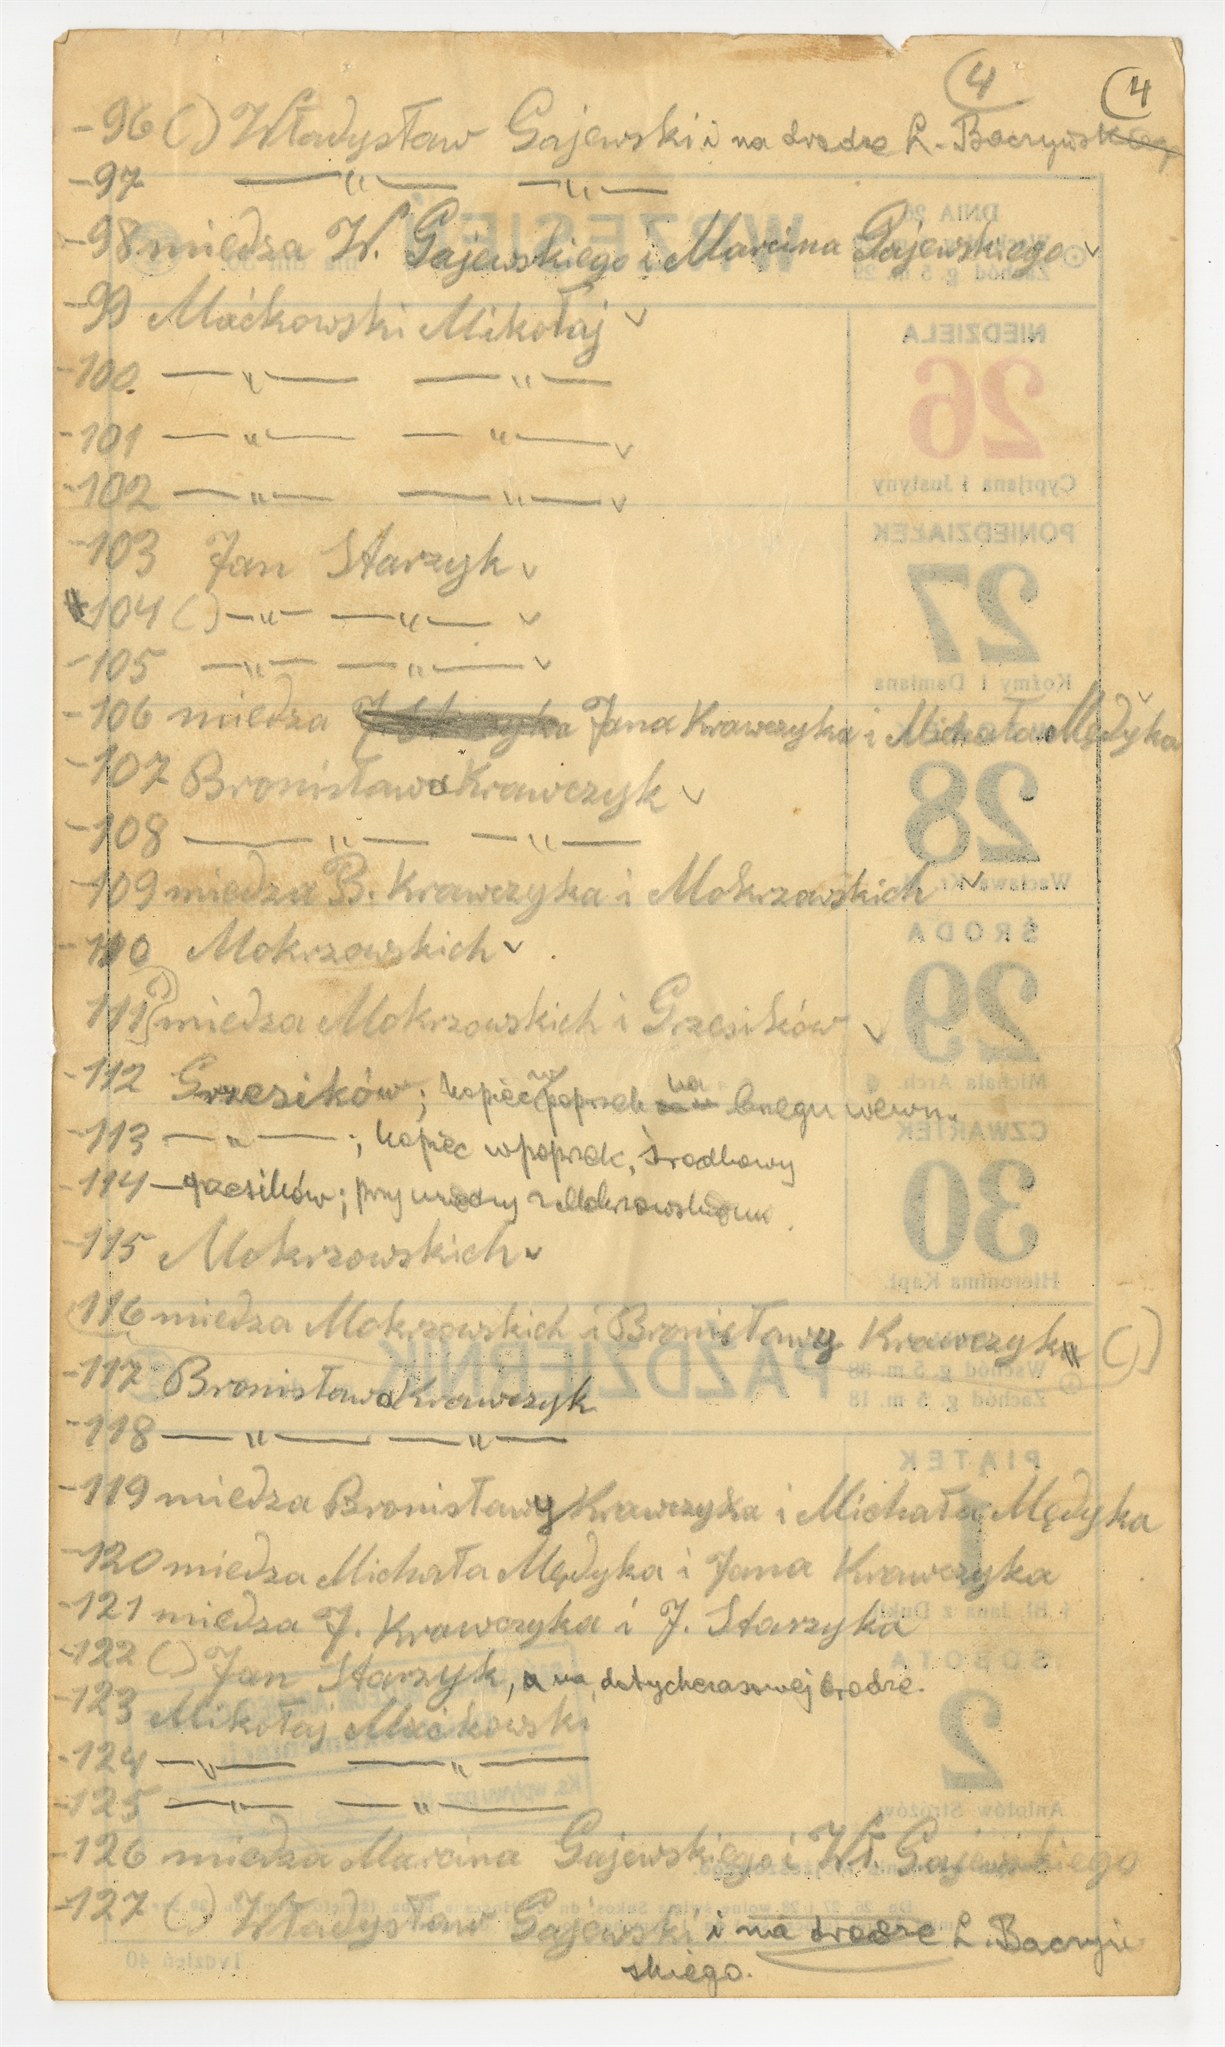 4 4
-96 ( ) Władysław Gajewski i na drodze L. Baczyńskiego
-97 —„— —„—
-98 miedza W. Gajewskiego i Marcina Gajewskiego v
-99 Maćkowski Mikołaj v
-100. —„— —„—
-101 —„— —„— v
-102 —„— —„— v
-103 Jan Starzyk v
-104 ( ) —„— —„— v
-105 —„— —„— v
-106 miedza Jana Krawczyka i Michała Mędyka
-107 Bronisława Krawczyk v
-108 —„— —„—
-109 miedza B. Krawczyka i Mokrzowskich v
-110 Mokrzowskich v
111 miedza Mokrzowskich i Grzesików v
-112 Grzesików; kopiec w poprzek na brzegu wewn.
-113 —„—; kopiec w poprzek, środkowy
-114 — Grzesików; przy miedzy z Mokrzowskiemi.
-115 Mokrzowskich v
(116 miedza Mokrzowskich i Bronisławy Krawczyk ( )
-117 Bronisława Krawczyk
-118 —„— —„—
-119 miedza Bronisławy Krawczyka i Michała Mędyka
-120 miedza Michała Mędyka i Jana Krawczyka
-121 miedza J. Krawczyka i J. Starzyka
-122 ( ) Jan Starzyk, a na dotychczasowej drodze.
-123 Mikołaj Maćkowski
-124 —„— —„—
-125 —„— —„—
-126 miedza Marcina Gajewskiego i Wł. Gajewskiego
-127 ( ) Władysław Gajewski i na drodze L. Baczyń
skiego.
WRZESIEŃ
NIEDZIELA
26
Cyprjana i Justyny
PONIEDZIAŁEK
27
Koźmy i Damiana
28
Wacława Kr.
ŚRODA
29
Michała Arch.
CZWARTEK
30
Hieronima Kapł.
PAŹDZIERNIK
Wschód g. 5 m. 38
Zachód g. 5 m. 18
PIĄTEK
1
Bł. Jana z Dukli
SOBOTA
2
Aniołów Stróżów
Tydzień 40